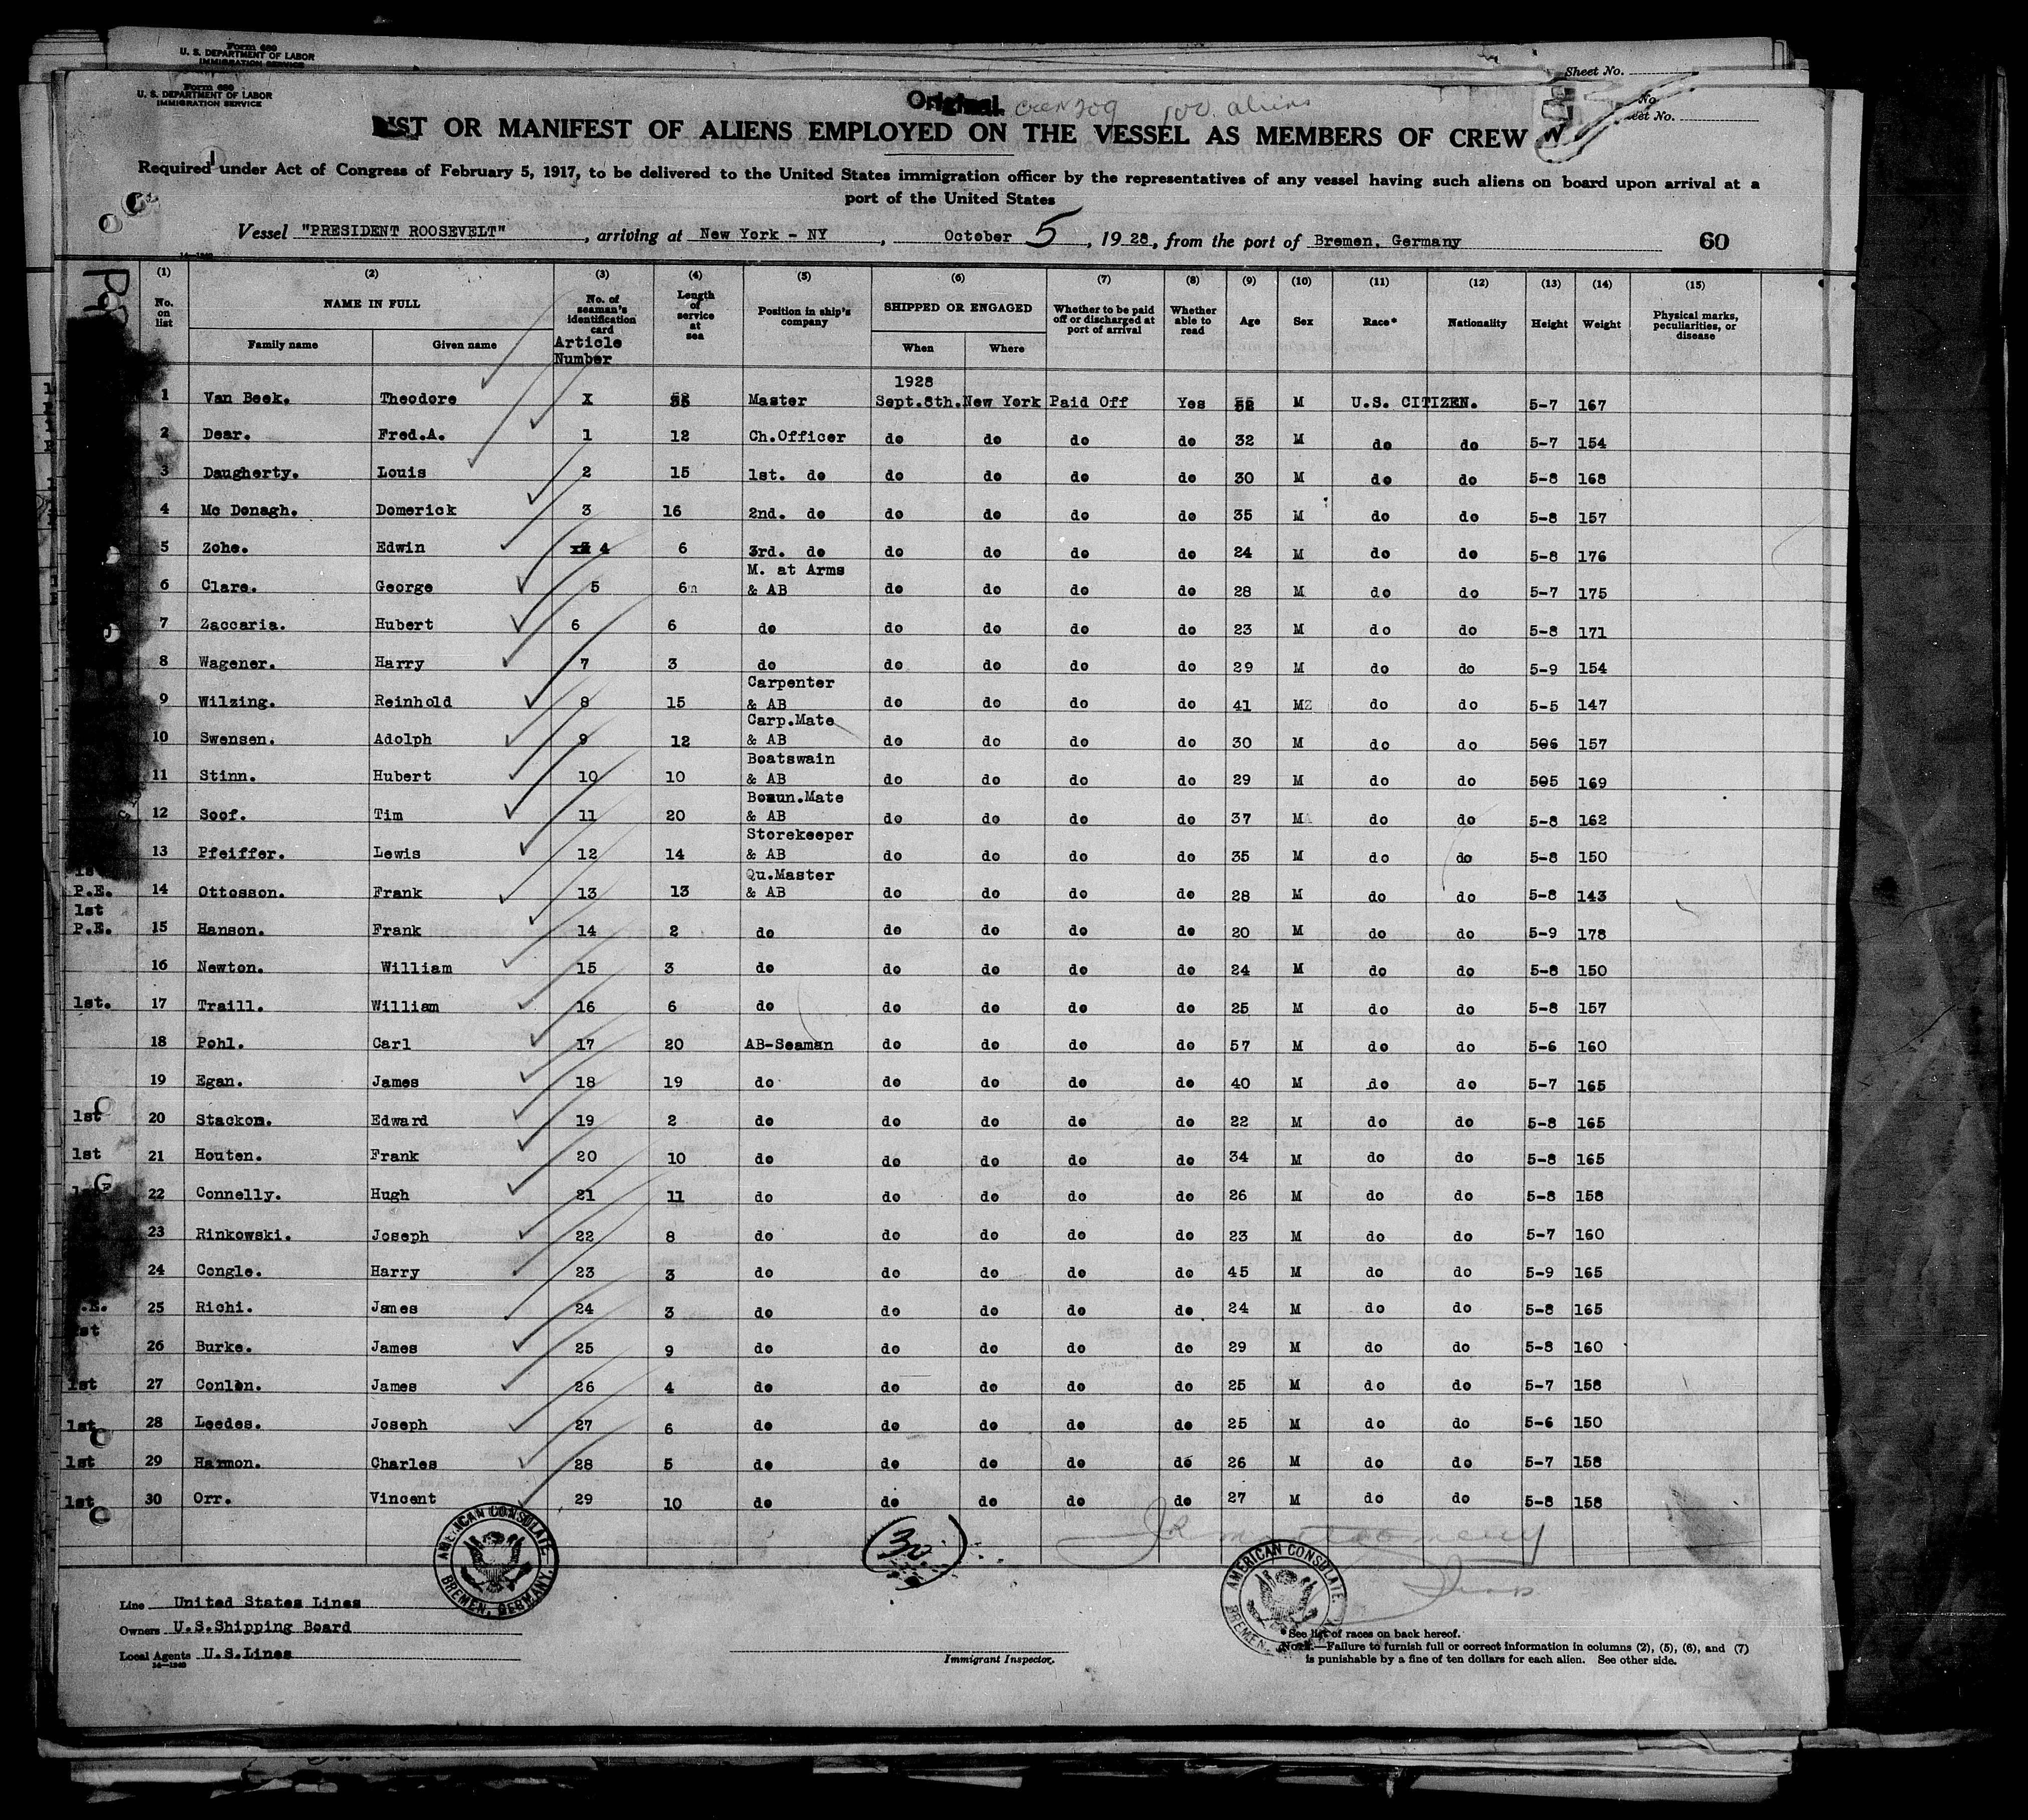 Form 680
U. S. DEPARTMENT OF LABOR
IMMIGRATION SERVICE
Sheet No.
Form 680
U. S. DEPARTMENT OF LABOR
IMMIGRATION SERVICE
Original
100 aliens
LIST OR MANIFEST OF ALIENS EMPLOYED ON THE VESSEL AS MEMBERS OF CREW
Required under Act of Congress of February 5, 1917, to be delivered to the United States immigration officer by the representatives of any vessel having such aliens on board upon arrival at a
port of the United States
Vessel "PRESIDENT ROOSEVELT", arriving at New York - NY, October 5, 1928, from the port of Bremen, Germany 60
(1) (2) (3) (4) (5) (6) (7) (8) (9) (10) (11) (12) (13) (14) (15)
No. on list NAME IN FULL No. of seaman's identification card Length of service at sea Position in ship's company SHIPPED OR ENGAGED Whether to be paid off or discharged at port of arrival Whether able to read Age Sex Race* Nationality Height Weight Physical marks, peculiarities, or disease
Family name Given name Article Number When Where
1928
1 Van Beek. Theodore X Master Sept.8th. New York Paid Off Yes M U.S. CITIZEN. 5-7 167
2 Dear. Fred.A. 1 12 Ch.Officer do do do do 32 M do do 5-7 154
3 Daugherty. Louis 2 15 1st. do do do do do 30 M do do 5-8 168
4 Mc Donagh. Domerick 3 16 2nd. do do do do do 35 M do do 5-8 157
5 Zohe. Edwin 4 6 3rd. do do do do do 24 M do do 5-8 176
6 Clare. George 5 6 M. at Arms & AB do do do do 28 M do do 5-7 175
7 Zaccaria. Hubert 6 6 do do do do do 23 M do do 5-8 171
8 Wagener. Harry 7 3 do do do do do 29 M do do 5-9 154
9 Wilzing. Reinhold 8 15 Carpenter & AB do do do do 41 M do do 5-5 147
10 Swensen. Adolph 9 12 Carp.Mate & AB do do do do 30 M do do 506 157
11 Stinn. Hubert 10 10 Boatswain & AB do do do do 29 M do do 505 169
12 Soof. Tim 11 20 Bosun.Mate & AB do do do do 37 M do do 5-8 162
13 Pfeiffer. Lewis 12 14 Storekeeper & AB do do do do 35 M do do 5-8 150
P.E. 14 Ottosson. Frank 13 13 Qu.Master & AB do do do do 28 M do do 5-8 143
1st
P.E. 15 Hanson. Frank 14 2 do do do do do 20 M do do 5-9 178
16 Newton. William 15 3 do do do do do 24 M do do 5-8 150
1st. 17 Traill. William 16 6 do do do do do 25 M do do 5-8 157
18 Pohl. Carl 17 20 AB-Seaman do do do do 57 M do do 5-6 160
19 Egan. James 18 19 do do do do do 40 M do do 5-7 165
1st 20 Stackon. Edward 19 2 do do do do do 22 M do do 5-8 165
1st 21 Houten. Frank 20 10 do do do do do 34 M do do 5-8 165
22 Connelly. Hugh 21 11 do do do do do 26 M do do 5-8 158
23 Rinkowski. Joseph 22 8 do do do do do 23 M do do 5-7 160
24 Congle. Harry 23 3 do do do do do 45 M do do 5-9 165
25 Richi. James 24 3 do do do do do 24 M do do 5-8 165
26 Burke. James 25 9 do do do do do 29 M do do 5-8 160
1st 27 Conlon. James 26 4 do do do do do 25 M do do 5-7 158
1st 28 Leedes. Joseph 27 6 do do do do do 25 M do do 5-6 150
1st 29 Harmon. Charles 28 5 do do do do do 26 M do do 5-7 158
1st 30 Orr. Vincent 29 10 do do do do do 27 M do do 5-8 158
30
AMERICAN CONSULATE. BREMEN, GERMANY.
AMERICAN CONSULATE. BREMEN,
Line United States Lines
Owners U.S.Shipping Board
Local Agents U.S.Lines
14-1240
Immigrant Inspector.
*See list of races on back hereof.
NOTE.—Failure to furnish full or correct information in columns (2), (5), (6), and (7)
is punishable by a fine of ten dollars for each alien. See other side.